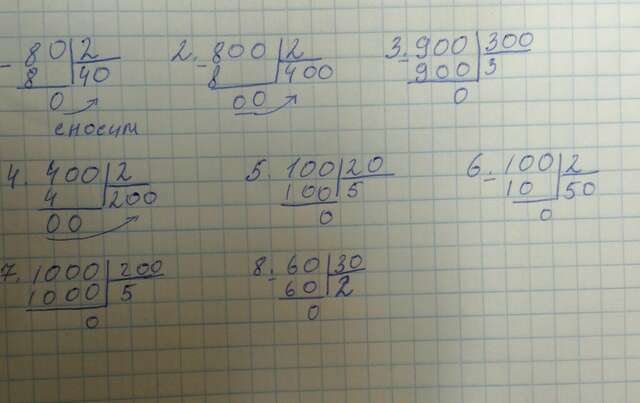 - 80 2 2. - 800 2 3. - 900 300
8 40 8 400 900 3
0 00 0
сносим
4. 400 2 5. 100 20 6. - 100 2
4 200 100 5 10 50
00 0 0
7. 1000 200 8. - 60 30
1000 5 60 2
0 0